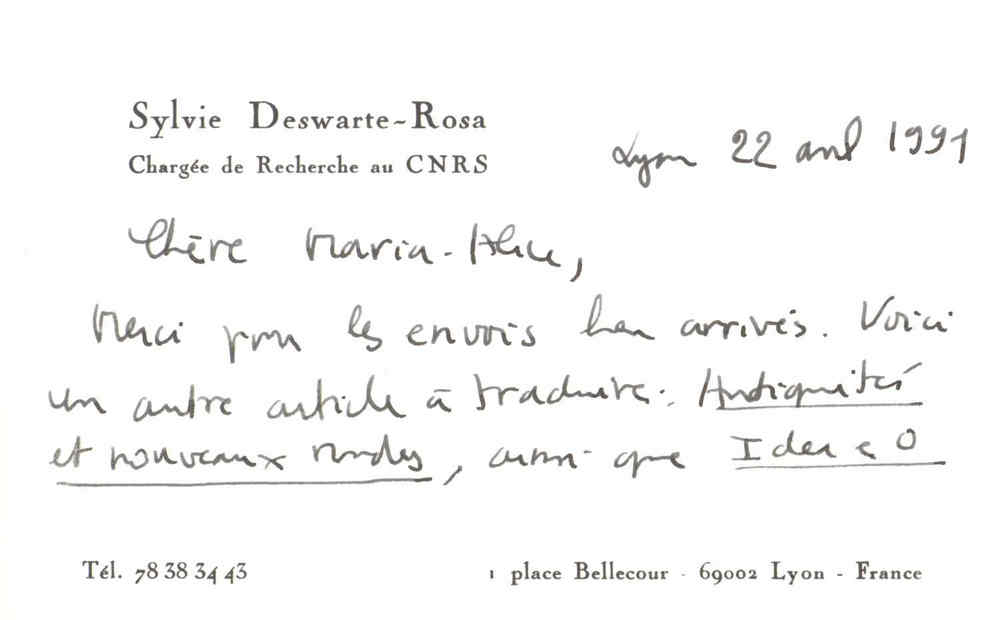 Sylvie Deswarte-Rosa
Chargée de Recherche au CNRS
Lyon 22 avril 1991
Chère Maria-Alice,
Merci pour les envois bien arrivés. Voici
un autre article à traduire : Antiquités
et nouveaux mondes, ainsi que Idea e O
Tél. 78 38 34 43
1 place Bellecour - 69002 Lyon - France